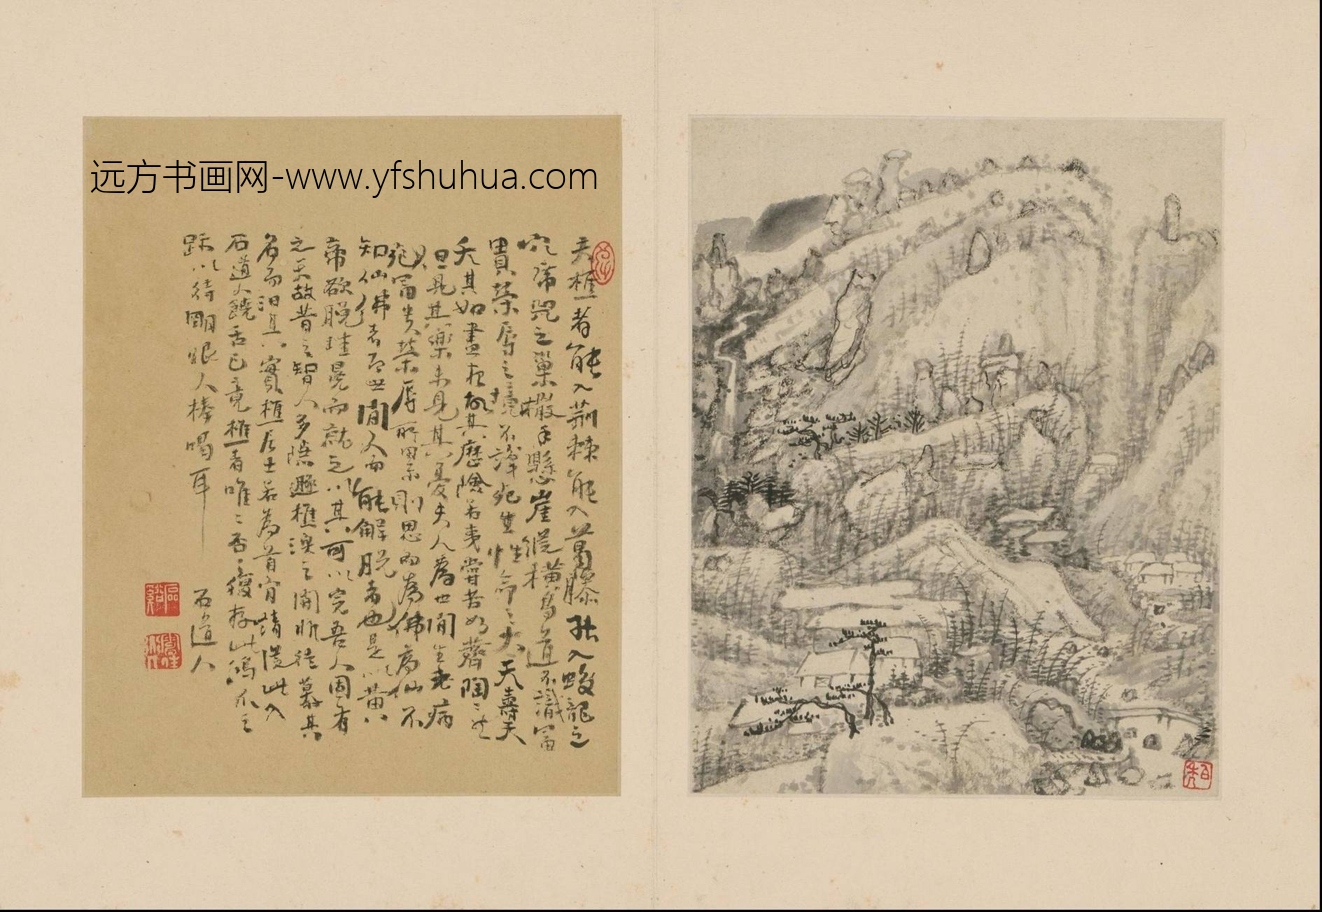 远方书画网-www.yfshuhua.com
夫樵者能入荆棘能入葛藤能入蛟龍之
穴席兕之巢撒手懸崖縱橫鳥道不識富
貴榮辱之境不諱死生性命之大夭壽天
夭其如晝夜故其歷險若夷嘗苦如薺陶之然
但見其樂未見其憂夫人為世間生老病
死富貴榮辱所累則思而為佛為仙不
知仙佛者即世間人而能解脫者也是以黃
帝欲脫珪冕而就之以其可以完吾人固有
之天故昔之智人多隱遯樵漁之間昕從慕其
名而汨其實樵居士若為首肯請浸此入
石道人饒舌已竟樵者唯之否否復存此鴻爪之
跡以待明眼人棒喝耳
石道人